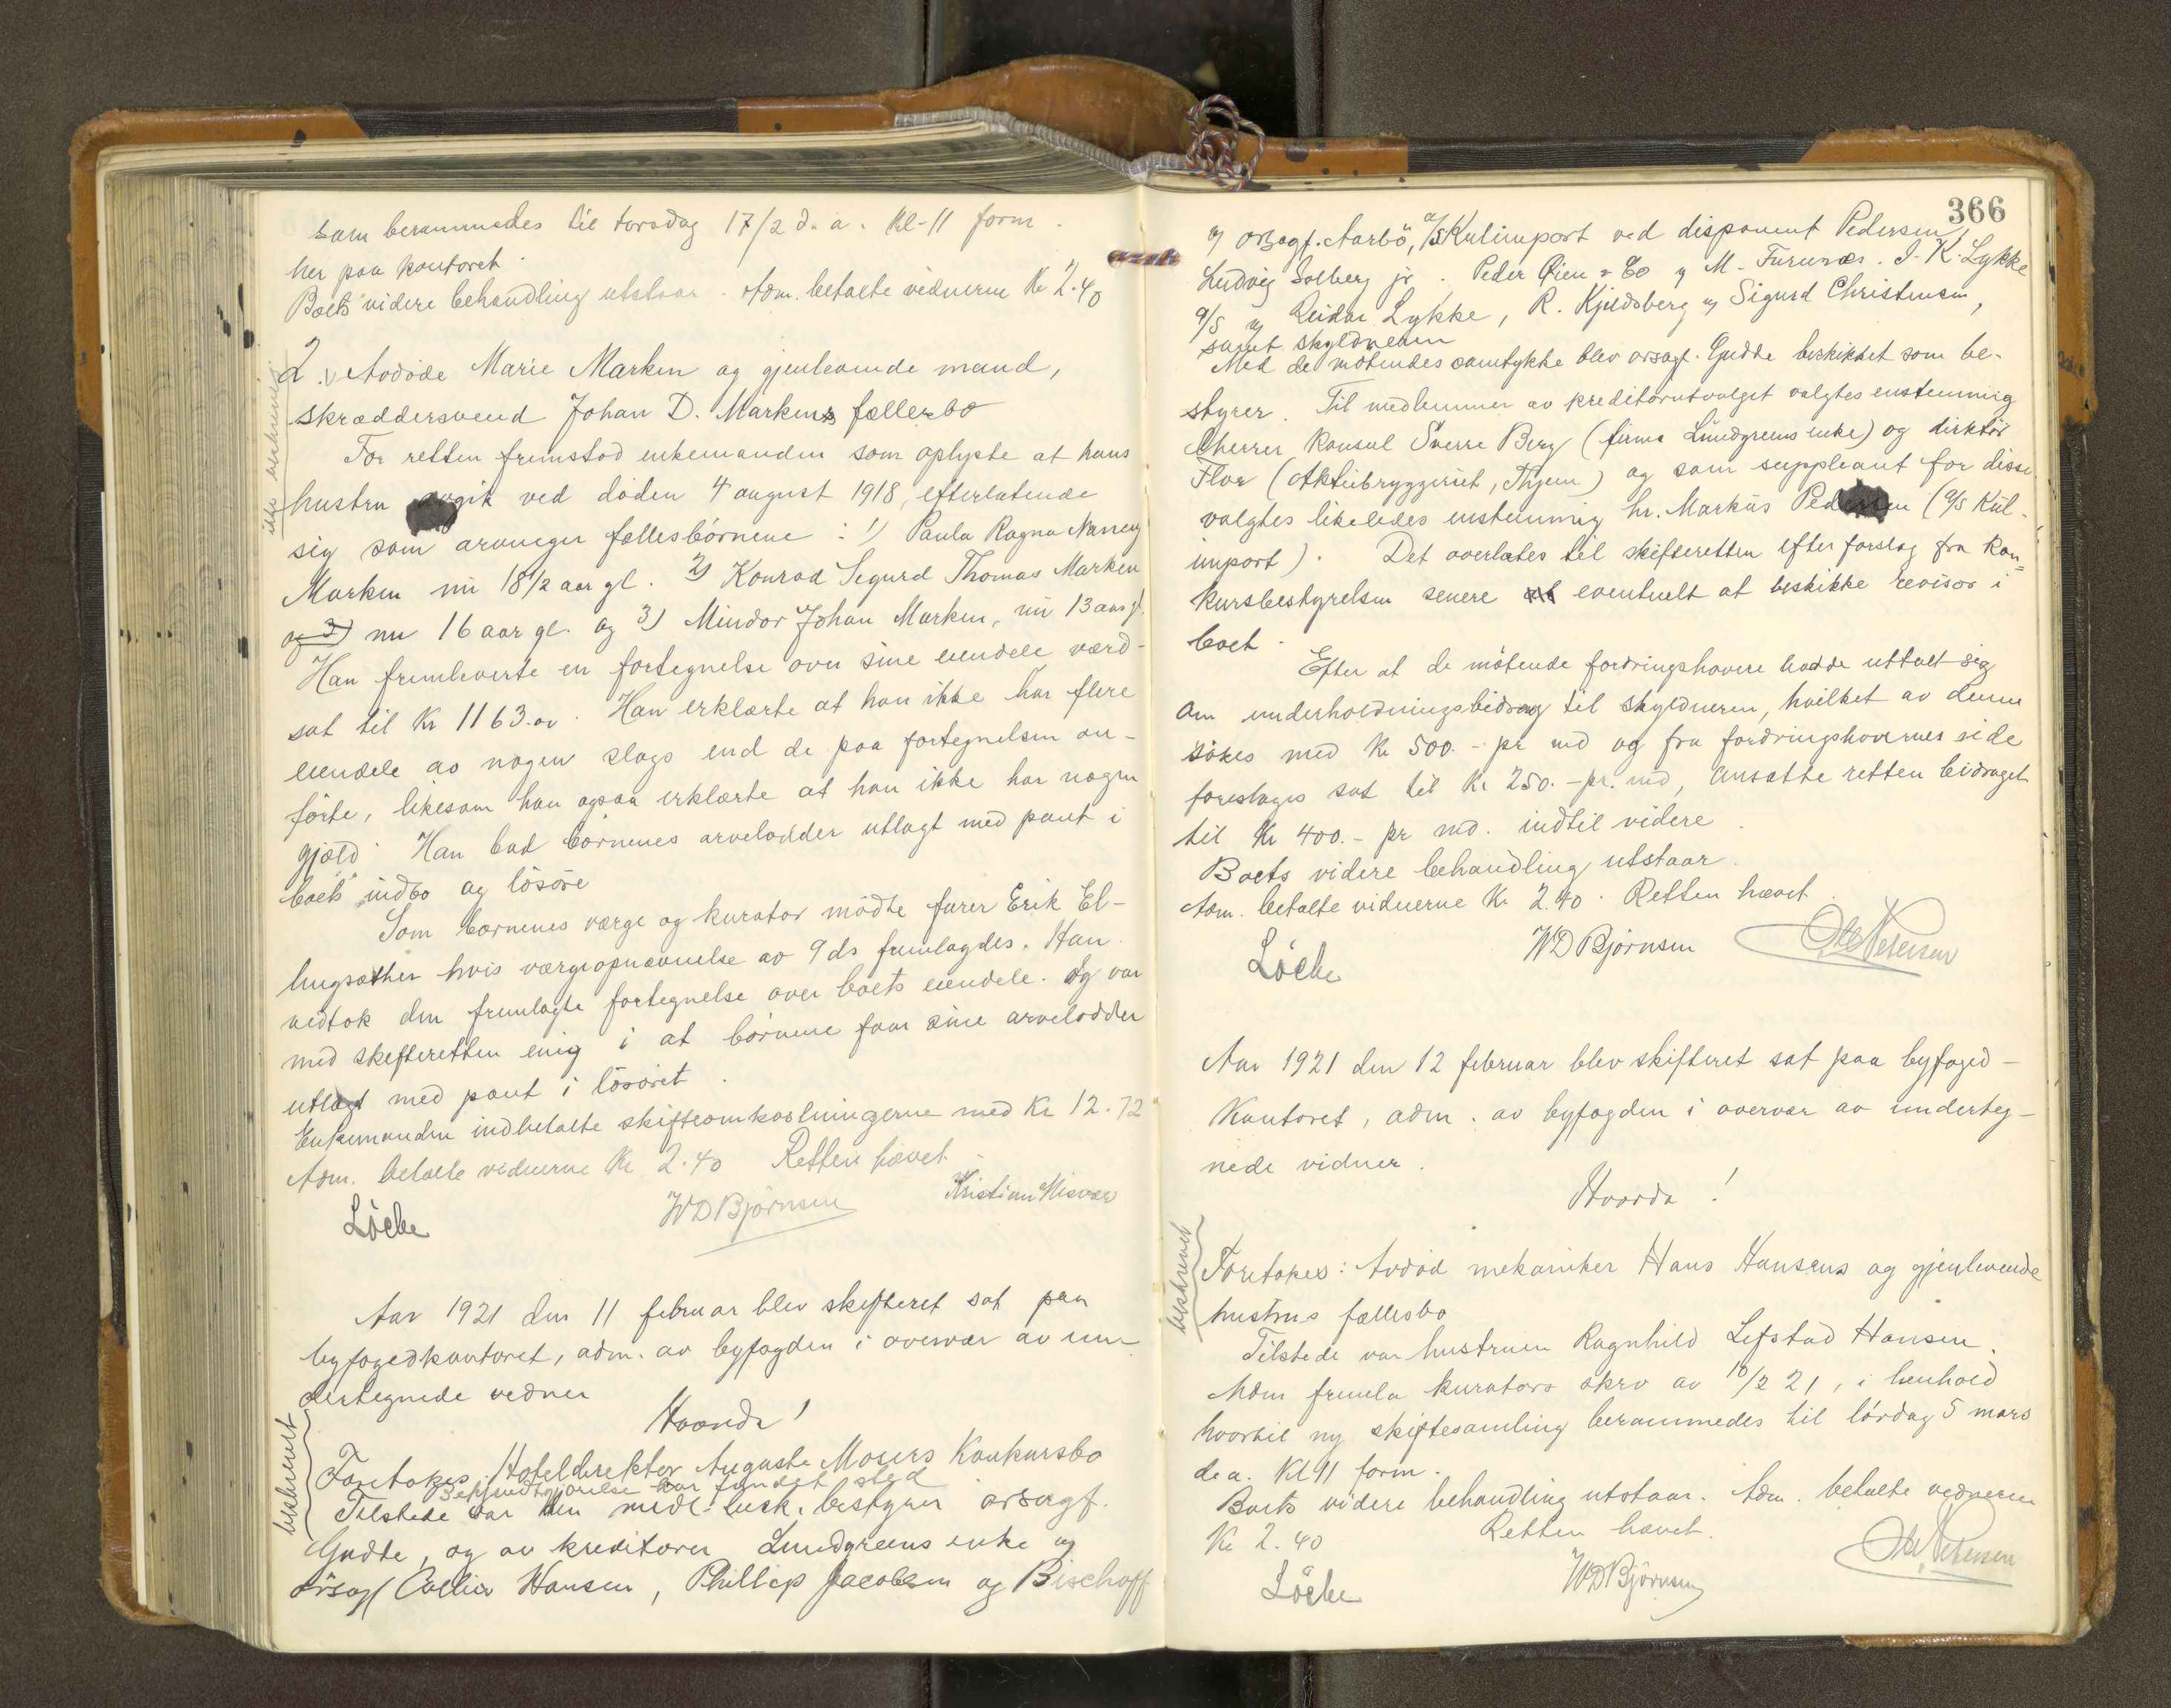 som berammedes til torsdag 17/2 d. a. Kl. 11 form.
her paa kontoret.
Boets videre behandling utstaar. Adm. betalte vidnerne Kr 2.40
ikke beskrevet
2. Avdøde Marie Marken og gjenlevende mand,
skræddersvend Johan D. Markens fællesbo
For retten fremstod enkemanden som oplyste at hans
hustru avgik ved døden 4 august 1918, efterlatende
sig som arvinger fællesbørnene: 1) Paula Ragna Nancy
Marken nu 18 1/2 aar gl. 2) Konrad Sigurd Thomas Marken
og 3) nu 16 aar gl. og 3) Mindor Johan Marken, nu 13 aar gl.
Han fremleverte en fortegnelse over sine eiendele værd-
sat til Kr 1163.00. Han erklærte at han ikke har flere
eiendele av nogen slags end de paa fortegnelsen an-
førte, likesom han ogsaa erklærte at han ikke har nogen
gjæld. Han bad børnenes arvelodder utlagt med pant i
boets indbo og løsøre
Som børnenes værge og kurator mødte furer Erik El-
lingsæther hvis værgeopnævnelse av 9 ds fremlagdes. Han
vedtok den fremlagte fortegnelse over boets eiendele. Og var
med skifteretten enig i at børnene faar sine arvelodder
utlagt med pant i løsøret.
Enkemanden indbetalte skifteomkostningerne med Kr 12.72
Adm. betalte vidnerne Kr 2.40 Retten hævet.
Löcke WD Bjørnsen Kristian
Aar 1921 den 11 februar blev skifteret sat paa
byfogedkontoret, adm. av byfogden i overvær av un-
dertegnede vidner
Hvorda!
beskrevet
Foretokes: Hoteldirektør Auguste Mosers Konkursbo
Bekjendtgjørelse har fundet sted
Tilstede var den midl. besk. bestyrer orsagf.
Gudde, og av kreditorer Lundgreens enke og
orsagf Collin Hansen, Phillip Jacobsen og Bischoff
366
og orsagf. Aarbö, A/S Kulimport ved disponent Pedersen,
Ludvig Solberg jr. Peder Øien & Co og M. Furunæs. I. K. Lykke
A/S og Reidar Lykke, R. Kjeldsberg og Sigurd Christensen,
samt skyldneren
Med de møtendes samtykke blev orsagf. Gudde beskikket som be-
styrer. Til medlemmer av kreditorutvalget valgtes enstemmig
herrer konsul Sverre Berg (firma Lundgreens enke) og direktør
Flor (Aktiebryggeriet, Thjem) og som suppleant for disse
valgtes likeledes enstemmig hr. Markus Pedersen (A/S Kul-
import). Det overlates til skifteretten efter forslag fra kon-
kursbestyrelsen senere eventuelt at beskikke revisor i
boet.
Efter at de møtende fordringshavere hadde uttalt sig
om underholdningsbidrag til skyldneren, hvilket av denne
søkes med Kr 500.- pr md og fra fordringshavernes side
foreslages sat til Kr 250.- pr. md, ansatte retten bidraget
til Kr 400.- pr md. indtil videre.
Boets videre behandling utstaar.
Adm. betalte vidnerne Kr. 2.40. Retten hævet.
Löcke WD Bjørnsen Ole Petersen
Aar 1921 den 12 februar blev skifteret sat paa byfoged-
kontoret, adm. av byfogden i overvær av underteg-
nede vidner.
Hvorda!
beskrevet
Foretokes: Avdød mekaniker Hans Hansens og gjenlevende
hustrus fællesbo
Tilstede var hustruen Ragnhild Lefstad Hansen.
Adm fremla kurators skrv av 10/2 21, i henhold
hvortil ny skiftesamling berammedes til lørdag 5 mars
d. a. Kl 11 form.
Boets videre behandling utstaar. Adm. betalte vidnerne
Kr 2.40 Retten hævet.
Löcke WD Bjørnsen Ole Petersen